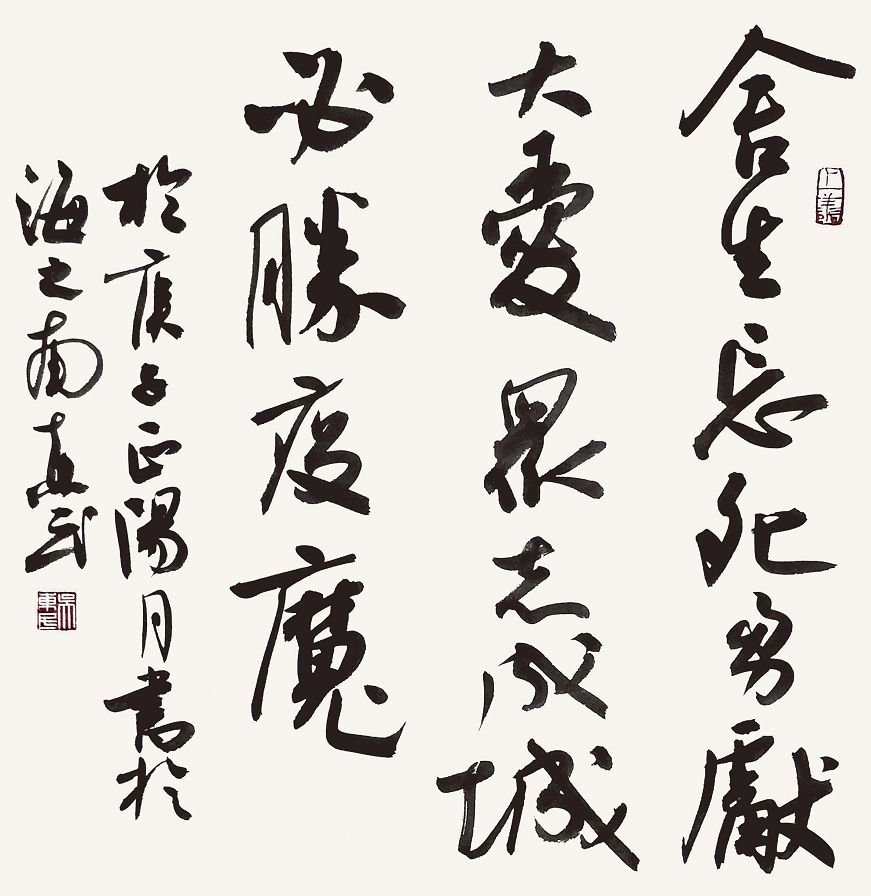 舍生忘死勇獻
大愛眾志成城
必勝疫魔
於庚子正陽月書於
海之南
吳東民